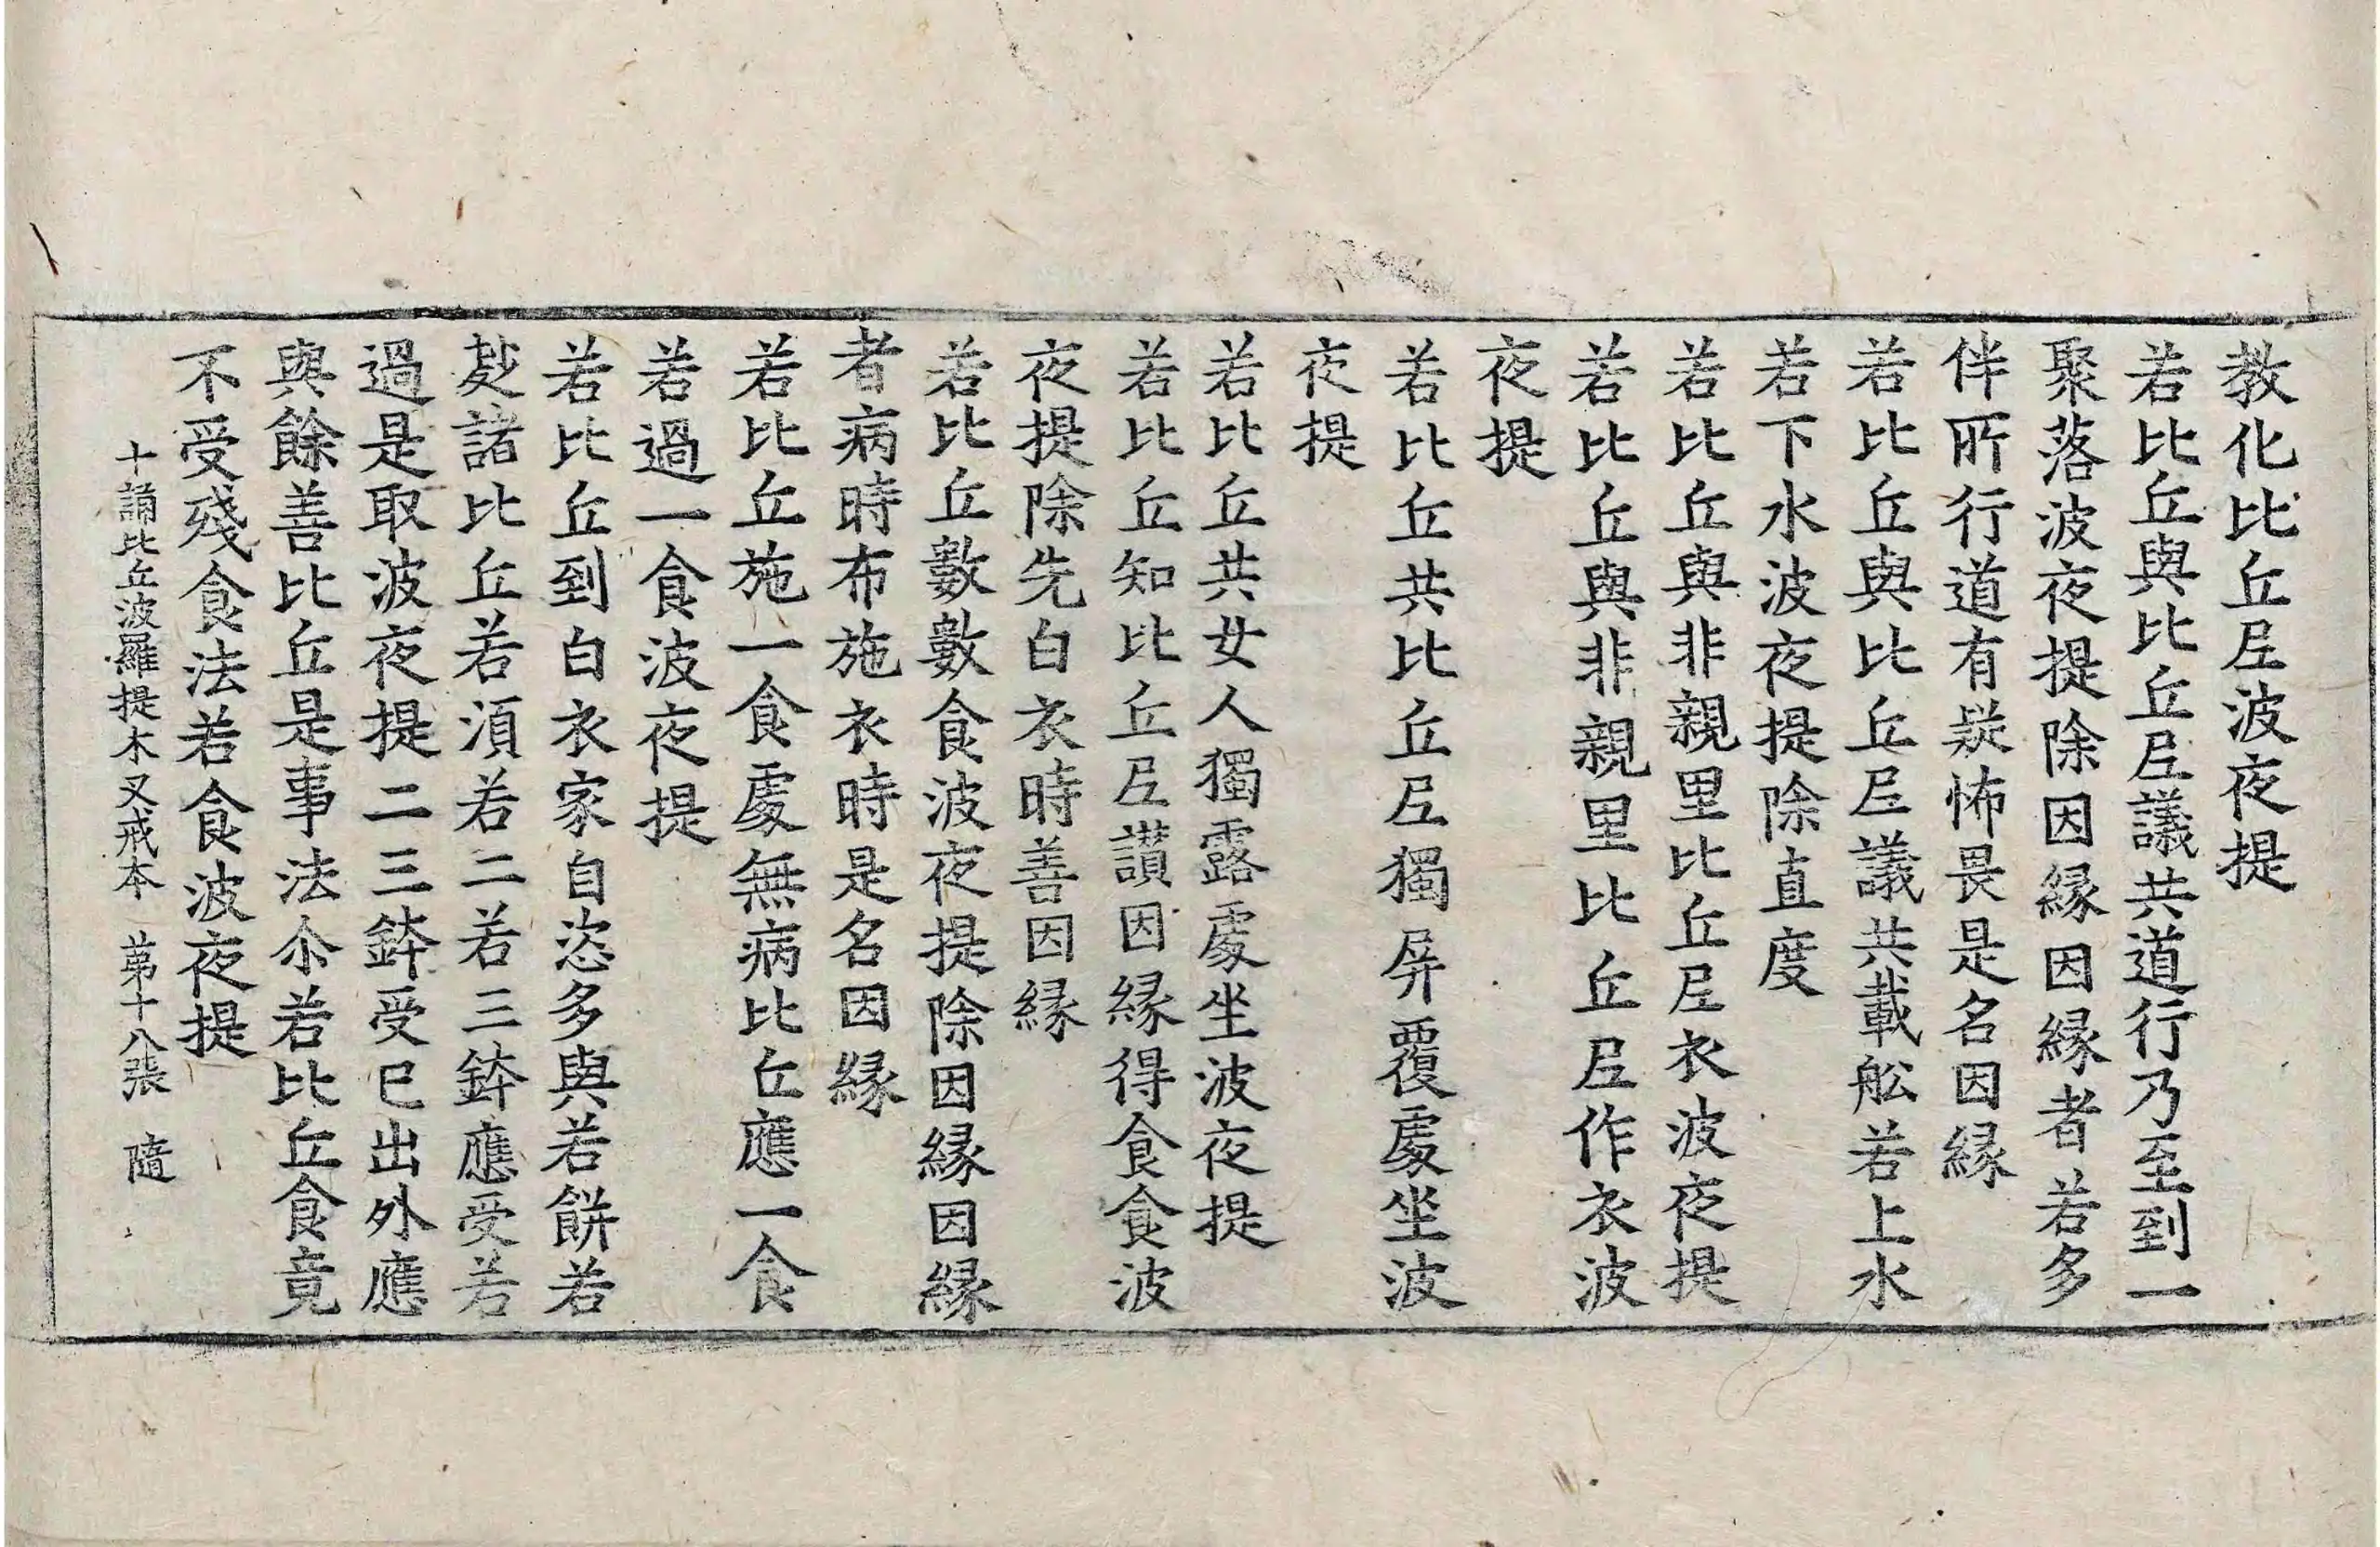 教化比丘尼波夜提
若比丘與比丘尼議共道行乃至到一
聚落波夜提除因緣因緣者若多
伴所行道有疑怖畏是名因緣
若比丘與比丘尼議共載舩若上水
若下水波夜提除直度
若比丘與非親里比丘尼衣波夜提
若比丘與非親里比丘尼作衣波
夜提
若比丘共比丘尼獨屏覆處坐波
夜提
若比丘共女人獨露處坐波夜提
若比丘知比丘尼讃因緣得食食波
夜提除先白衣時善因緣
若比丘數數食波夜提除因緣因緣
者病時布施衣時是名因緣
若比丘施一食處無病比丘應一食
若過一食波夜提
若比丘到白衣家自恣多與若餅若
麨諸比丘若湏若二若三鉢應受若
過是取波夜提二三鉢受已出外應
與餘善比丘是事法尒若比丘食竟
不受殘食法若食波夜提
十誦比丘波羅提木叉戒本 苐十八張 隨